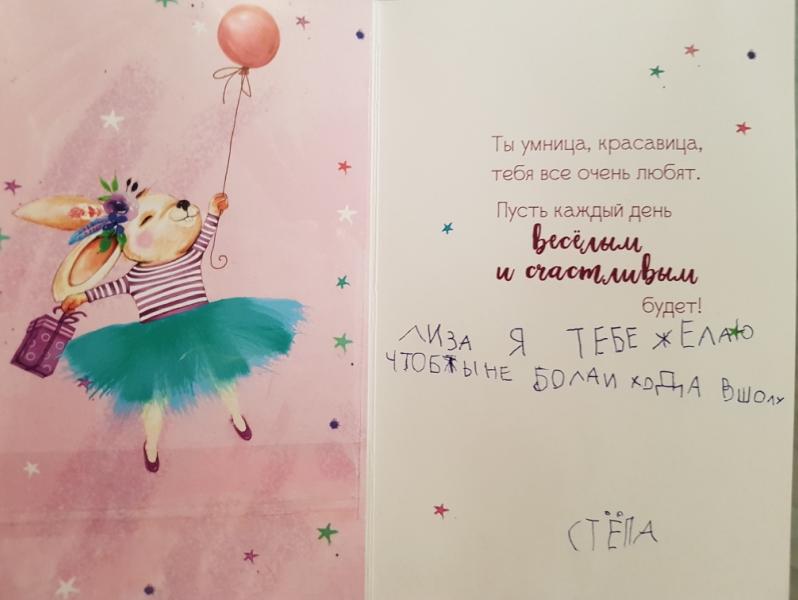 Ты умница, красавица,
тебя все очень любят.
Пусть каждый день
весёлым
и счастливым
будет!
ЛИЗА Я ТЕБЕ ЖЕЛАЮ
ЧТОБТЫ НЕ БОЛАИ ХОДИЛА ВШОЛУ
СТЁПА